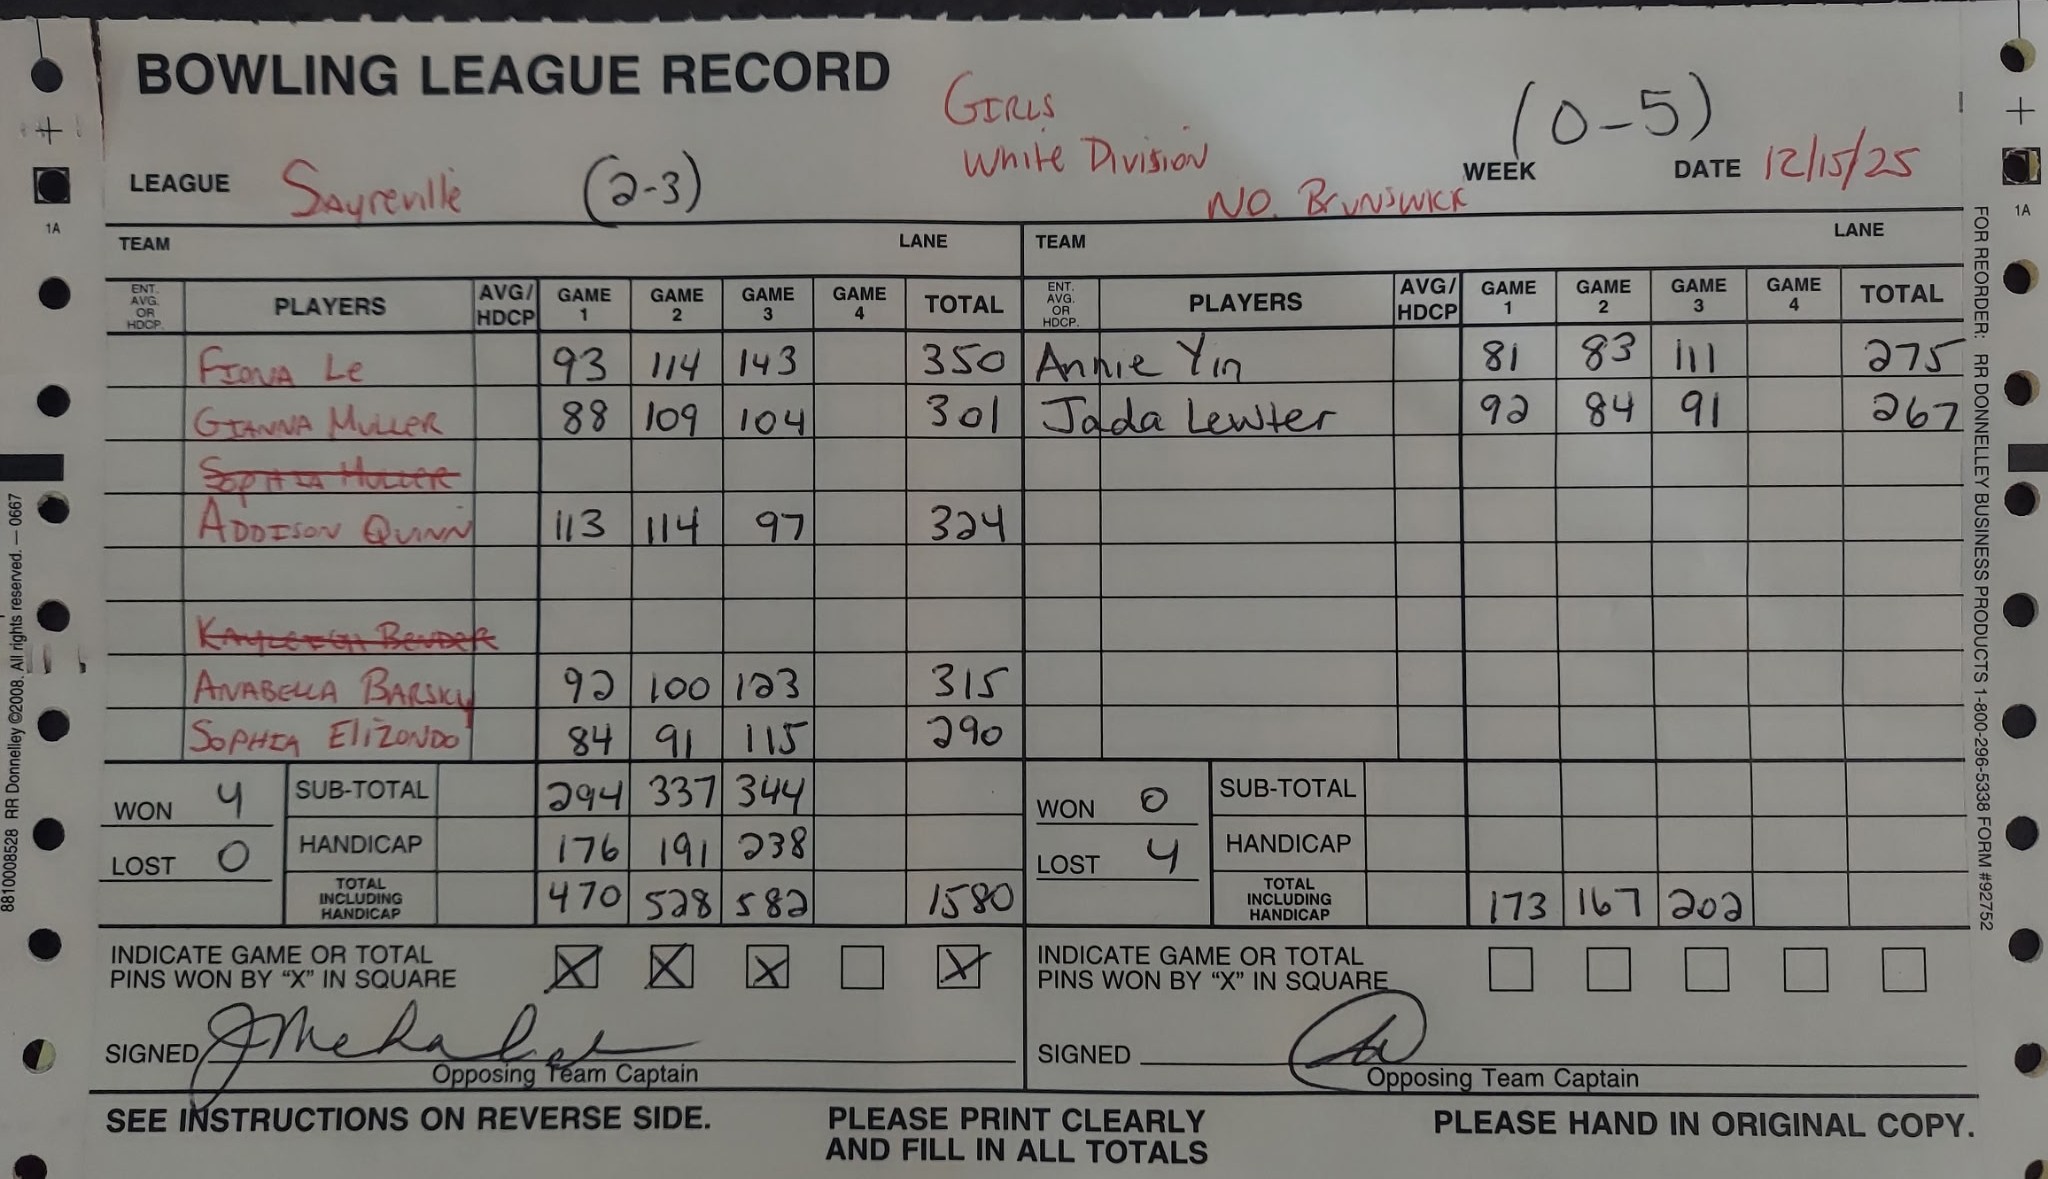 BOWLING LEAGUE RECORD
GIRLS
White Division
(0-5)
LEAGUE Sayreville (2-3) WEEK DATE 12/15/25
NO. BRUNSWICK
TEAM LANE TEAM LANE
ENT. AVG. OR HDCP. PLAYERS AVG/ HDCP GAME 1 GAME 2 GAME 3 GAME 4 TOTAL ENT. AVG. OR HDCP. PLAYERS AVG/ HDCP GAME 1 GAME 2 GAME 3 GAME 4 TOTAL
FIONA Le 93 114 143 350 Annie Yin 81 83 111 275
GIANNA MULLER 88 109 104 301 Jada Lewter 92 84 91 267
SOPHIA MULLER
ADDISON QUINN 113 114 97 324
KAYLEIGH BENDER
ANABELLA BARSKY 92 100 123 315
SOPHIA ElIZONDO 84 91 115 290
WON 4 SUB-TOTAL 294 337 344 WON 0 SUB-TOTAL
LOST 0 HANDICAP 176 191 238 LOST 4 HANDICAP
TOTAL INCLUDING HANDICAP 470 528 582 1580 TOTAL INCLUDING HANDICAP 173 167 202
INDICATE GAME OR TOTAL INDICATE GAME OR TOTAL
PINS WON BY “X” IN SQUARE X X X X PINS WON BY “X” IN SQUARE
SIGNED SIGNED
Opposing Team Captain Opposing Team Captain
SEE INSTRUCTIONS ON REVERSE SIDE. PLEASE PRINT CLEARLY PLEASE HAND IN ORIGINAL COPY.
AND FILL IN ALL TOTALS
1A
1A
8810008528 RR Donnelley ©2008. All rights reserved. — 0667
FOR REORDER: RR DONNELLEY BUSINESS PRODUCTS 1-800-296-5338 FORM #92752